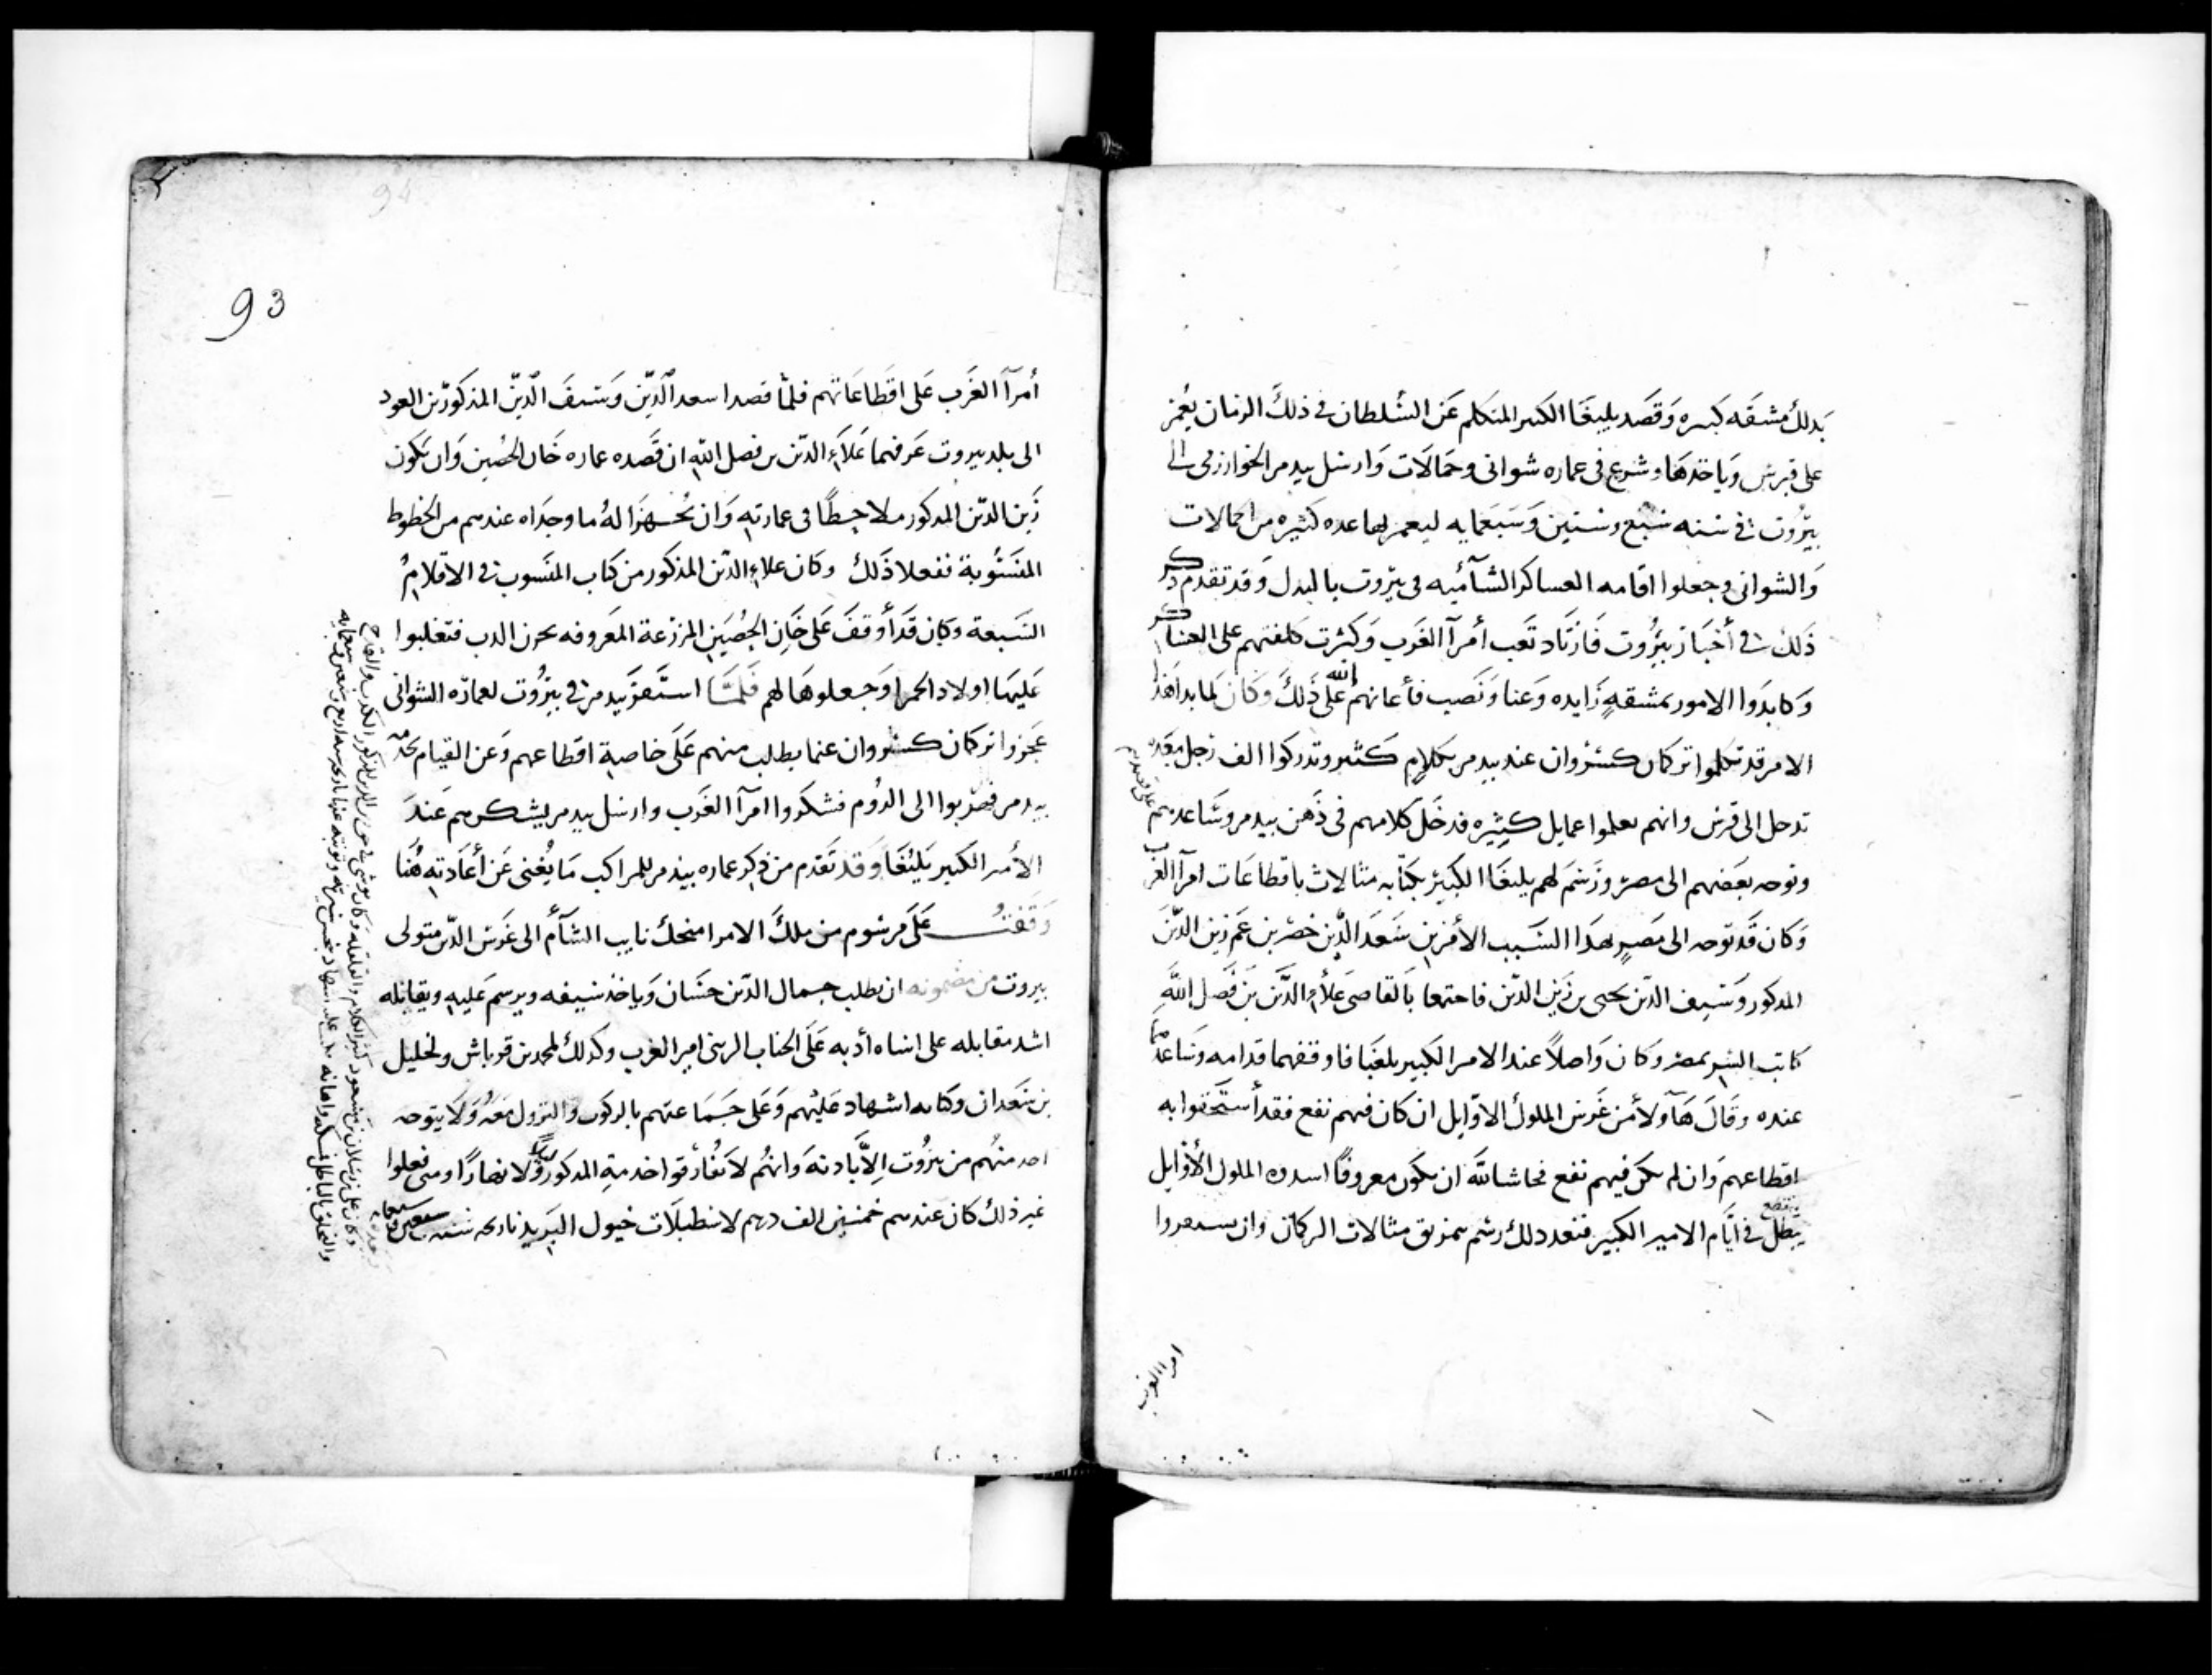 بذلك مشقه كبيره وقصد يلبغا الكبير المتكلم عن السلطان في ذلك الزمان يعمر
على قبرس وياخدها وشرع في عماره شواني وحمالات وارسل بيدمر الخوارزمي الى
بيروت في سنه سبع وستين وسبعمايه ليعمر لهما عده كثيره من الحمالات
والشواني وجعلوا اقامه العساكر الشآميه في بيروت بالبدل وقد تقدم ذكر
ذلك في أخبار بيروت فازتاد تعب أمرآ الغرب وكثرت كلفتهم
وكابدوا الامور بمشقةٍ زايده وعنا ونصب فأعانهم الله على ذلك وكان لما بدا هذا
الامر قد تكلموا تركمان كسروان عند بيدمر بكلامٍ كثير وتدركوا الف رجل
تدخل الى قبرس وانهم يعملوا عمايل كثيره فدخل كلامهم في ذهن بيدمر وساعدهم على قصدهم
وتوجه بعضهم الى مصر ورسم لهم يلبغا الكبير بكتابه مثالات باقطاعات امرآ الغرب
وكان قد توجه الى مصر بهدا السبب الأمرين سعد الدين خضر بن عم زين الدين
المدكور وسيف الدين يحيى بن زين الدين فاجتمعا بالقاضي علاء الدين بن فضل الله
كاتب السر بمصر وكان واصلاً عند الامير الكبير يلبغا فاوقفهما قدامه وساعدهما
عنده وقال هآولا من غرس الملوك الاوايل ان كان فيهم نفع فقد أستحقوا به
اقطاعهم وان لم يكن فيهم نفع فحاشا لله ان يكون معروفًا اسدوه الملوك الأوايل
يبطل في ايام الامير الكبير فبعد دلك رسم بتمزيق مثالات التركمان وان يستمروا
امرا الغرب
93
أمرآ الغرب على اقطاعاتهم فلما قصدا سعد الدين وسيف الدين المذكورين العود
الى بلد بيروت عرفهما علاء الدين بن فضل الله ان قصده عماره خان الحصين وان يكون
زين الدين المدكور ملاحظًا في عمارته وان يجهزا له ما وجداه عندهم من الخطوط
المنسوبة ففعلا ذلك وكان علاء الدين المذكور من كتاب المنسوب في الاقلام
السبعة وكان قد أوقف على خان الحصين المزرعة المعروفه فتغلبوا
عليها اولاد الحمرا وجعلوها لهم فلما استقر بيدمر في بيروت لعمارة الشواني
عجزوا تركمان كسروان عما يطلب منهم على خاصية اقطاعهم وعن القيام بخدمة
بيدمر فهربوا الى الروم فشكروا امرآ الغرب وارسل بيدمر يشكرهم عند
الأمير الكبير يلبغا وقد تقدم من ذكر عماره بيدمر للمراكب ما يغني عن أعادته هنا
وقفت على مرسوم من ملك الامرا منجك نايب الشآم الى غرس الدين متولي
بيروت من مضمونه ان يطلب جمال الدين حسان وياخذ سيفه ويرسم عليه ويقابله
اشد مقابله على اساه أدبه على الجناب الزيني امير الغرب وكدلك لمحمد بن قرباش ولخليل
بن سعدان وكتابه اشهاد عليهم وعلى جماعتهم بالركوب والنزول معه ولا يتوجه
احد منهم من بيروت إلا بادنه وانهم لا يفارقوا خدمة المدكور ليلاً ولا نهارًا ومتى فعلوا
غير ذلك كان عندهم خمسين الف درهم لاسطبلات خيول البريد تاريخه سنه